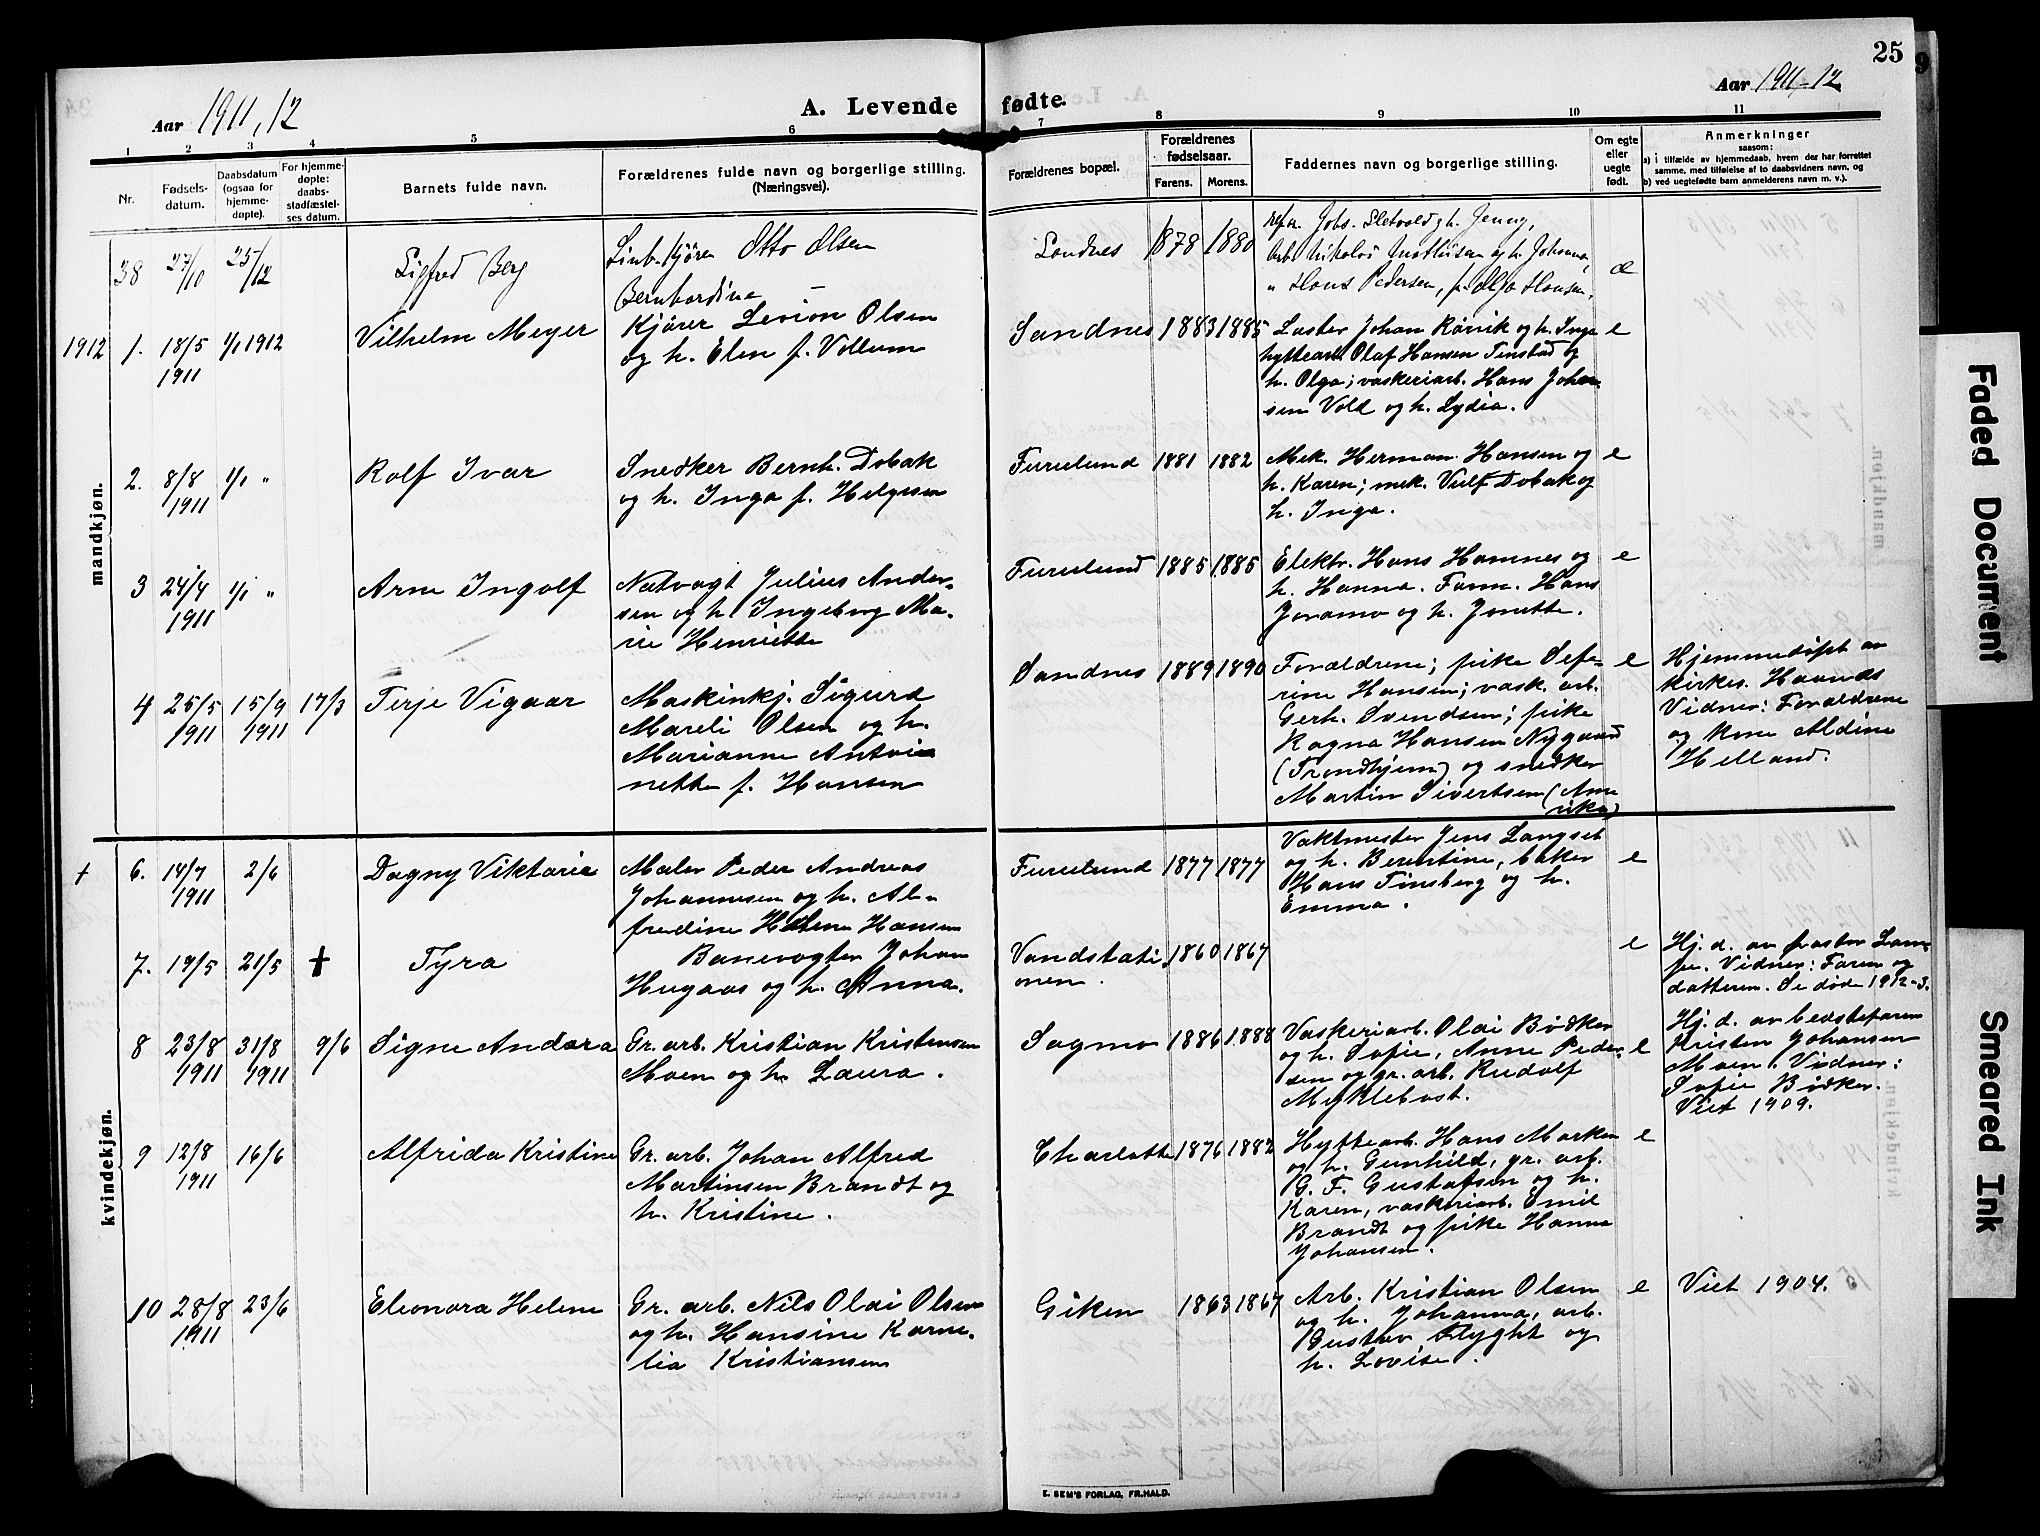 25
Aar 1911, 12
A. Levende fødte.
Aar 1911-12
1 2 3 4 5 6 7 8 9 10 11
Nr.
Fødsels-
datum.
Daabsdatum
(ogsaa for
hjemme-
døpte).
For hjemme-
døpte:
daabs-
stadfæstel-
ses datum.
Barnets fulde navn.
Forældrenes fulde navn og borgerlige stilling.
(Næringsvei).
Forældrenes bopæl.
Forældrenes
fødselsaar.
Farens. Morens.
Faddernes navn og borgerlige stilling.
Om egte
eller
uegte
født.
Anmerkninger
saasom:
a) i tilfælde av hjemmedaab, hvem der har forrettet
samme, med tilføielse af to daabsvidners navn, og
b) ved uegtefødte barn anmelderens navn m. v.).
mandkjøn.
38 27/10 25/12
Sigfred Berg
Otto Olsen
Bernhardine
Sandnes 1878 1880
Jobs. Sletvold og h. Jenny,
arb. Nikolai Mathisen og h. Johanna,
" Hans Pedersen, p. Olga Hansen.
æ
1912 1. 18/5 1911 1/1 1912
Vilhelm Meyer
Kjører Levion Olsen
og h. Elen f. Vollum
Sandnes 1883 1885
Laster Johan Rørvik og h. Inga
hyttearb. Olaf Hansen Finstad og
h. Olga; vaskeriarb. Hans Johan-
sen Vold og h. Lydia.
e
2. 8/8 1911 1/1 "
Rolf Ivar
Snedker Bernh. Dobak
og h. Inga f. Helgesen
Furulund 1881 1882
Mek. Herman Hansen og
h. Karen; mek. Vulf Dobak og
h. Inga.
e
3 24/4 1911 1/1 "
Arne Ingolf
Natvagt Julius Ander-
sen og h. Ingeborg Ma-
rie Henriette
Furulund 1885 1885
Elektr. Hans Hamnes og
h. Hanna. Form. Hans
Joramo og h. Jonette.
e
4 25/5 1911 15/9 1911 17/3
Terje Vigaar
Maskinkj. Sigurd
Mareli Olsen og h.
Marianne Antoi-
nette f. Hansen
Sandnes 1889 1890
Forældrene; pike Sefe-
rine Hansen; vask. arb.
Gerh. Svendsen; pike
Ragna Hansen Nygaard
(Trondhjem) og snedker
Martin Sivertsen (Ame
rika)
e
Hjemmedøpt av
kirkes. Haands
Vidner: Forældrene
og kone Aldine
Helland.
kvindekjøn.
+ 6. 14/7 1911 2/6
Dagny Viktoria
Maler Peder Andreas
Johannesen og h. Al-
fredine Helene Hansen
Furulund 1877 1877
Vaktmester Jens Langset
og h. Berentine, baker
Hans Tinsberg og h.
Emma.
e
7. 19/5 21/5 +
Tyra
Banevogter Johan
Hugaas og h. Anna.
Vandstati-
onen. 1860 1867
e
Hj. d. av pastor Lam-
pe. Vidner: Faren og
datteren. Se døde 1912-3.
8 23/8 1911 31/8 1911 9/6
Signe Andora
Gr. arb. Kristian Kristensen
Moen og h. Laura.
Sagmo 1886 1888
Vaskeriarb. Olai Bødker
og h. Sofie, Anne Peder-
sen og gr. arb. Rudolf
Myklebost.
e
Hj. d. av bedstefaren
Kristen Johansen
Moen. Vidner:
Sofie Bødker.
Viet 1909.
9 12/8 1911 16/6
Alfrida Kristine
Gr. arb. Johan Alfred
Martinsen Brandt og
h. Kristine.
Charlotte 1876 1882
Hyttearb. Hans Marken
og h. Gunhild, gr. arb.
G. F. Gustafsen og h.
Karen, vaskeriarb. Emil
Brandt og pike Hanna
Johansen.
e
10 28/8 1911 23/6
Eleonora Helene
Gr. arb. Nils Olai Olsen
og h. Hansine Karne-
lia Kristiansen
Giken 1863 1867
Arb. Kristian Olsen
og h. Johanna, arb.
Gustav Flyght og
h. Lovise.
e
Viet 1904.
E. SEM'S FORLAG, FR.HALD.
Faded Document
Smeared Ink